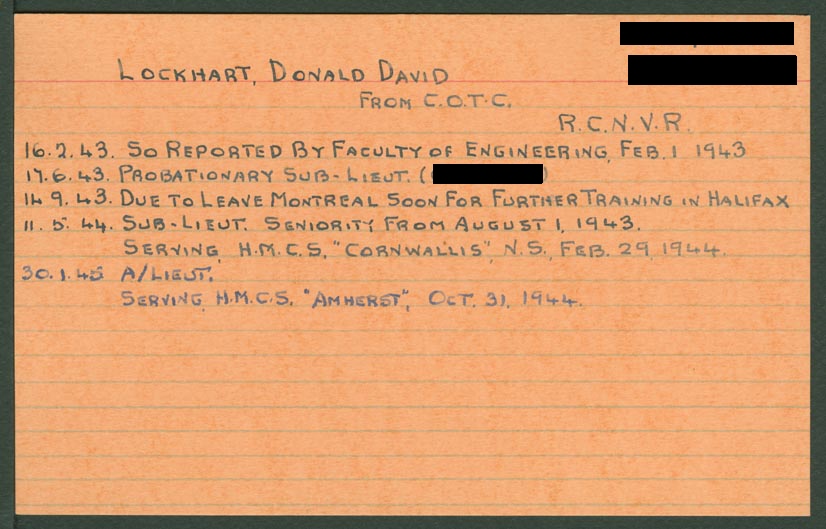 LOCKHART, DONALD DAVID
FROM C.O.T.C.
R.C.N.V.R.
16.2.43. SO REPORTED BY FACULTY OF ENGINEERING, FEB. 1 1943
17.6.43. PROBATIONARY SUB-LIEUT. ( )
14.9.43. DUE TO LEAVE MONTREAL SOON FOR FURTHER TRAINING IN HALIFAX
11.5.44. SUB-LIEUT. SENIORITY FROM AUGUST 1, 1943.
SERVING, H.M.C.S. "CORNWALLIS", N.S., FEB. 29, 1944.
30.1.45 A/LIEUT.
SERVING, H.M.C.S. "AMHERST", OCT. 31, 1944.